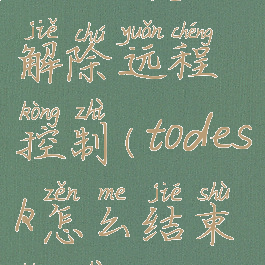 jiě chú yuǎn chéng
解除远程
kòng zhì
控制(todes
zěn me jié shù
k怎么结束